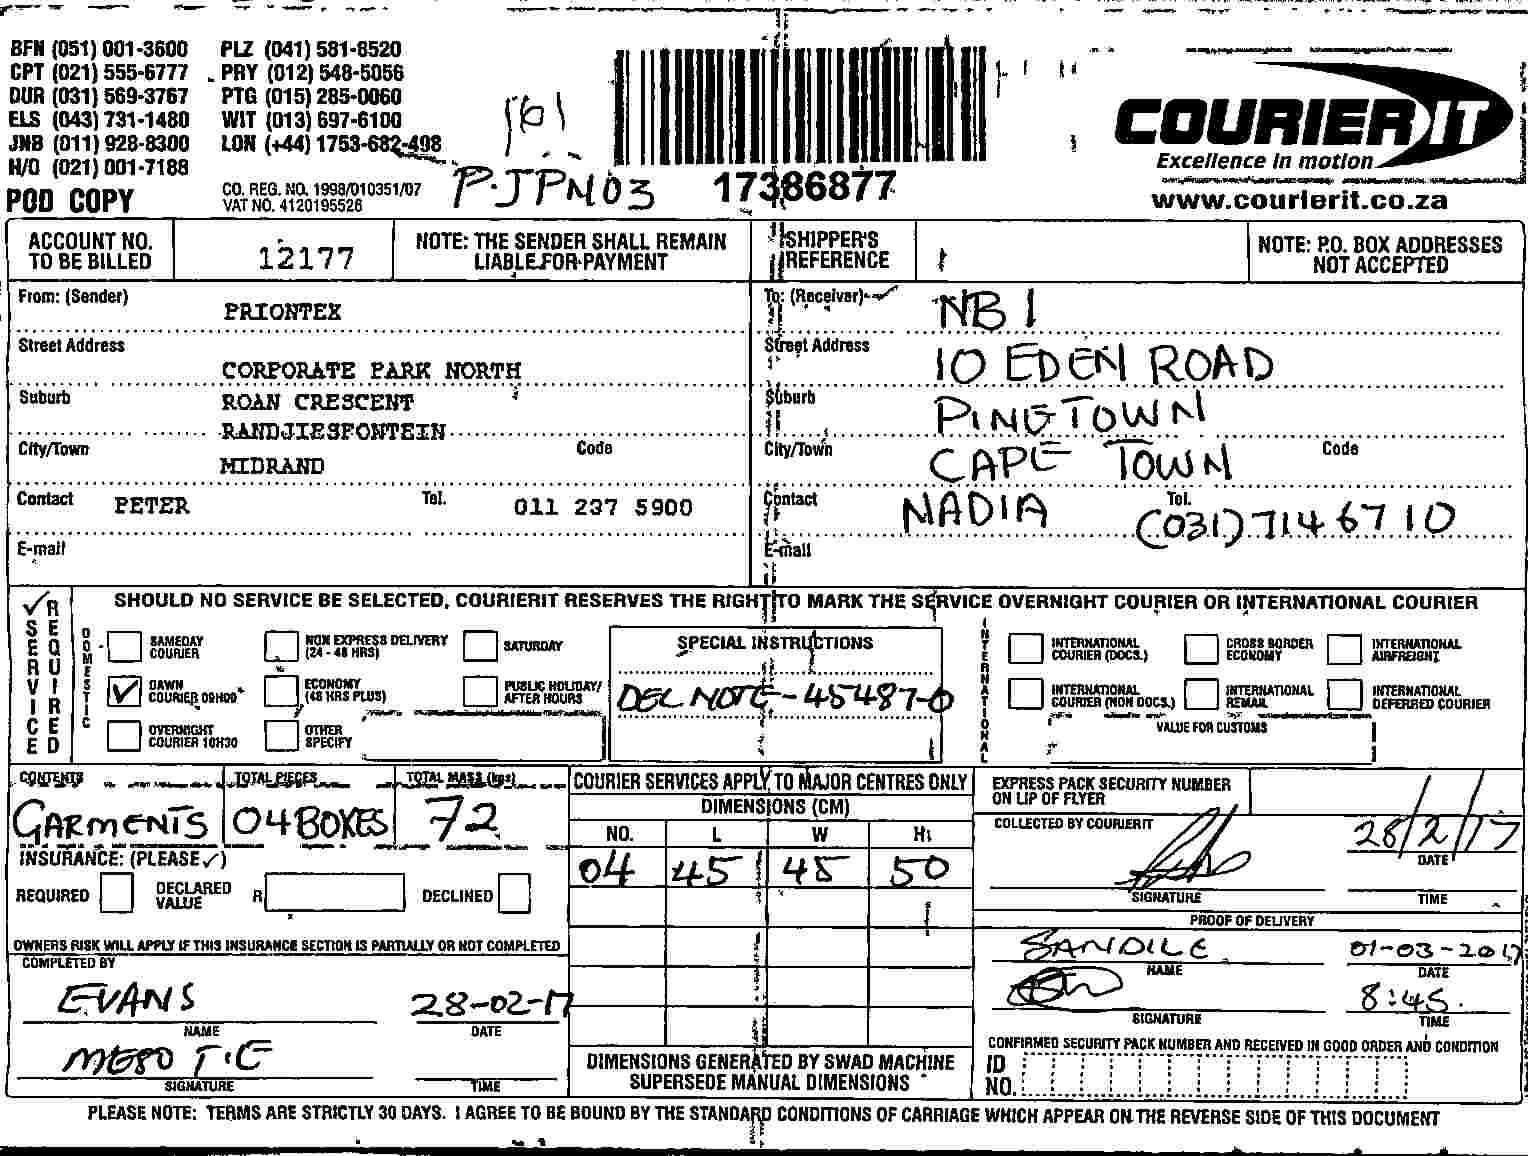 BFN (051) 001-3600 PLZ (041) 581-8520
CPT (021) 555-6777 PRY (012) 548-5056
DUR (031) 569-3767 PTG (015) 285-0060
ELS (043) 731-1480 WIT (013) 697-6100
JNB (011) 928-8300 LON (+44) 1753-682-498
H/O (021) 001-7188
POD COPY
CO. REG. NO. 1998/010351/07
VAT NO. 4120195526
161
P.JPN03
17386877
COURIER IT
Excellence in motion
www.courierit.co.za
ACCOUNT NO. TO BE BILLED
12177
NOTE: THE SENDER SHALL REMAIN LIABLE FOR PAYMENT
SHIPPER'S REFERENCE
NOTE: P.O. BOX ADDRESSES NOT ACCEPTED
From: (Sender) PRIONTEX
Street Address
CORPORATE PARK NORTH
Suburb ROAN CRESCENT
RANDJIESFONTEIN
City/Town MIDRAND Code
Contact PETER Tel. 011 237 5900
E-mail
To: (Receiver) NB 1
Street Address 10 EDEN ROAD
Suburb PINETOWN
City/Town CAPE TOWN Code
Contact NADIA Tel. (031) 714 6710
E-mail
SERVICE REQUIRED
SHOULD NO SERVICE BE SELECTED, COURIERIT RESERVES THE RIGHT TO MARK THE SERVICE OVERNIGHT COURIER OR INTERNATIONAL COURIER
DOMESTIC
SAMEDAY COURIER
NON EXPRESS DELIVERY (24 - 48 HRS)
SATURDAY
DAWN COURIER 09H00
ECONOMY (48 HRS PLUS)
PUBLIC HOLIDAY/ AFTER HOURS
OVERNIGHT COURIER 10H30
OTHER SPECIFY
SPECIAL INSTRUCTIONS
DEL NOTE - 45487-0
INTERNATIONAL
INTERNATIONAL COURIER (DOCS.)
CROSS BORDER ECONOMY
INTERNATIONAL AIRFREIGHT
INTERNATIONAL COURIER (NON DOCS.)
INTERNATIONAL REMAIL
INTERNATIONAL DEFERRED COURIER
VALUE FOR CUSTOMS
CONTENTS TOTAL PIECES TOTAL MASS (kgs)
GARMENTS 04 BOXES 72
INSURANCE: (PLEASE ✓)
REQUIRED DECLARED VALUE R DECLINED
OWNERS RISK WILL APPLY IF THIS INSURANCE SECTION IS PARTIALLY OR NOT COMPLETED
COMPLETED BY
EVANS 28-02-17
NAME DATE
SIGNATURE TIME
COURIER SERVICES APPLY TO MAJOR CENTRES ONLY
DIMENSIONS (CM)
NO. L W H
04 45 45 50
DIMENSIONS GENERATED BY SWAD MACHINE
SUPERSEDE MANUAL DIMENSIONS
EXPRESS PACK SECURITY NUMBER
ON LIP OF FLYER
COLLECTED BY COURIERIT
28/2/17
DATE
SIGNATURE TIME
PROOF OF DELIVERY
SANDILE 01-03-2017
NAME DATE
8:45
SIGNATURE TIME
CONFIRMED SECURITY PACK NUMBER AND RECEIVED IN GOOD ORDER AND CONDITION
ID NO.
PLEASE NOTE: TERMS ARE STRICTLY 30 DAYS. I AGREE TO BE BOUND BY THE STANDARD CONDITIONS OF CARRIAGE WHICH APPEAR ON THE REVERSE SIDE OF THIS DOCUMENT